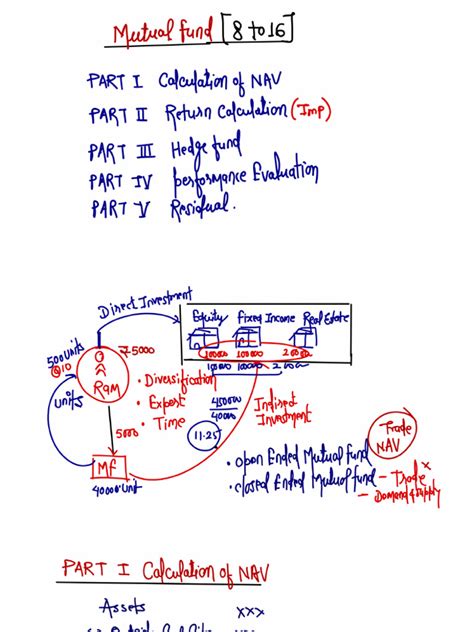 Mutual fund [8 to 16]
PART I Calculation of NAV
PART II Return Calculation (Imp)
PART III Hedge fund
PART IV performance Evaluation
PART V Residual.
Direct Investment
Equity Fixed Income Real Estate
100000 100000
500 units
@10
₹5000
Ram
units
5000
MF
40000 unit
• Diversification
• Expert
• Time
450000
40000
11.25
Indirect
Investment
Trade
NAV
• open Ended Mutual fund
• closed Ended Mutual fund – Trade x
– Demand & Supply
PART I Calculation of NAV
Assets xxx
xxx